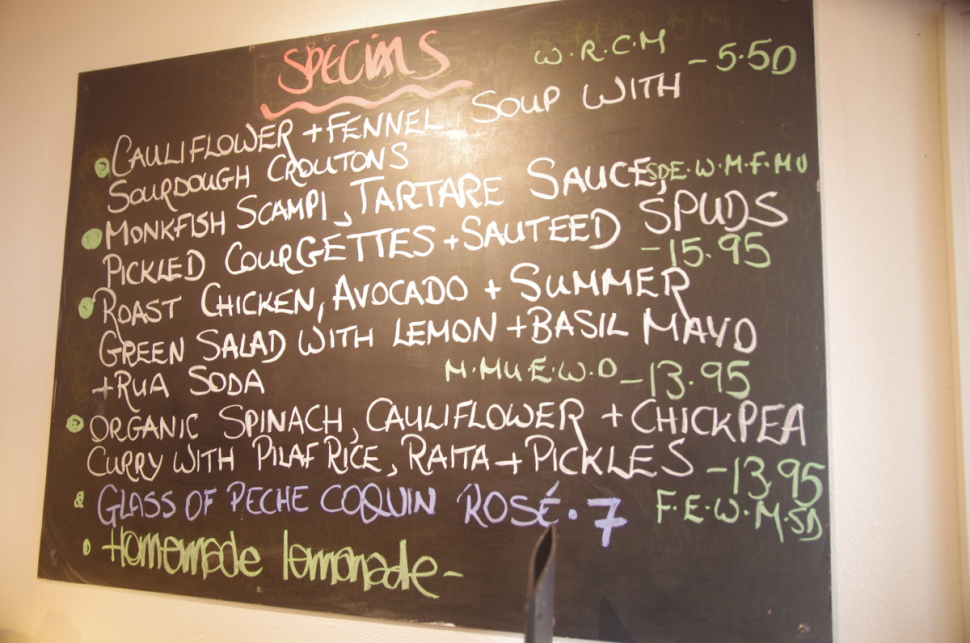 SPECIALS
W.R.C.M
- 5.50
CAULIFLOWER + FENNEL SOUP WITH
SOURDOUGH CROUTONS
MONKFISH SCAMPI, TARTARE SAUCE, SDE.W.M.F.MU
PICKLED COURGETTES + SAUTEED SPUDS
- 15.95
ROAST CHICKEN, AVOCADO + SUMMER
GREEN SALAD WITH LEMON + BASIL MAYO
+ RUA SODA M.MU.E.W.O - 13.95
ORGANIC SPINACH, CAULIFLOWER + CHICKPEA
CURRY WITH PILAF RICE, RAITA + PICKLES - 13.95
GLASS OF PECHE COQUIN ROSÉ. 7 F.E.W.M.SD
Homemade lemonade -